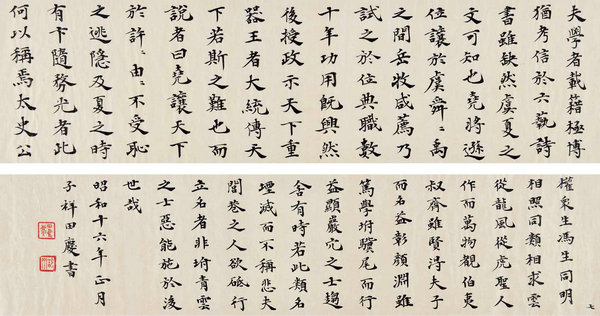 夫學者載籍極博
猶考信於六蓺詩
書雖缺然虞夏之
文可知也堯將遜
位讓於虞舜〻禹
之間岳牧咸薦乃
試之於位典職數
十年功用既興然
後授政示天下重
器王者大統傳天
下若斯之難也而
說者曰堯讓天下
於許〻由〻不受恥
之逃隱及夏之時
有卞隨務光者此
何以稱焉太史公
權衆生馮生同明
相照同類相求雲
從龍風從虎聖人
作而萬物覩伯夷
叔齊雖賢得夫子
而名益彰顏淵雖
篤學坿驥尾而行
益顯巖穴之士趨
舍有時若此類名
堙滅而不稱悲夫
閭巷之人欲砥行
立名者非坿青雲
之士惡能施於後
世哉
昭和十六年正月
子祥田慶書
七